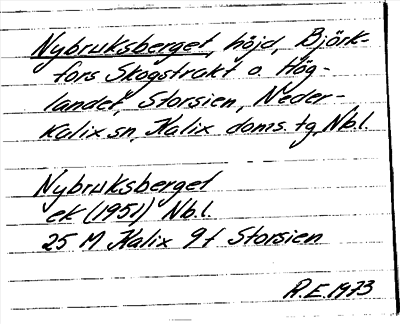 Nybruksberget, höjd, Björk-
fors Skogstrakt o. Hög-
landet, Storsien, Neder-
Kalix sn, Kalix doms. tg, Nb.l.
Nybruksberget
ek (1951) Nb.l.
25 M Kalix 9f Storsien
R.E. 1973